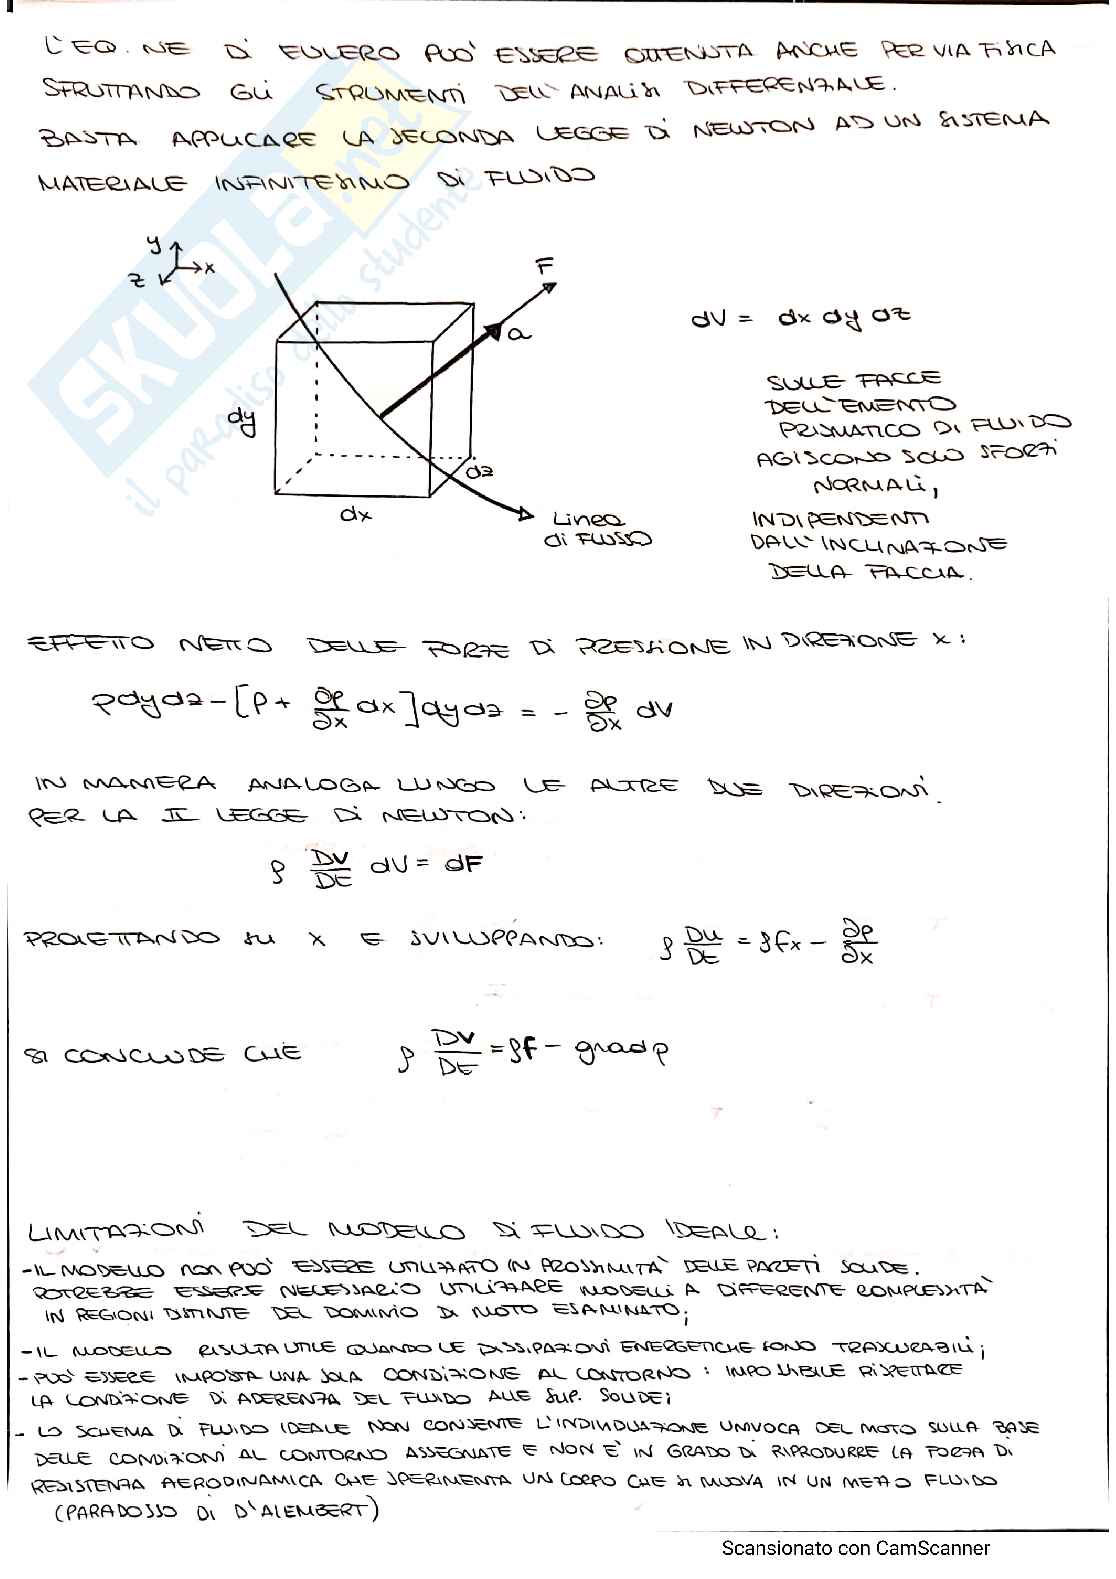 L'EQ.NE DI EULERO PUO' ESSERE OTTENUTA ANCHE PER VIA FISICA
SFRUTTANDO GLI STRUMENTI DELL'ANALISI DIFFERENZIALE.
BASTA APPLICARE LA SECONDA LEGGE DI NEWTON AD UN SISTEMA
MATERIALE INFINITESIMO DI FLUIDO
SKUOLA.net
il paradiso dello studente
y
x
z
F
a
dy
dz
dx
Linea
di FLUSSO
dV = dx dy dz
SULLE FACCE
DELL'EMENTO
PRISMATICO DI FLUIDO
AGISCONO SOLO SFORZI
NORMALI,
INDIPENDENTI
DALL'INCLINAZIONE
DELLA FACCIA.
EFFETTO NETTO DELLE FORZE DI PRESSIONE IN DIREZIONE X:
pdydz - [p + ∂p/∂x dx] dydz = - ∂p/∂x dV
IN MANIERA ANALOGA LUNGO LE ALTRE DUE DIREZIONI.
PER LA II LEGGE DI NEWTON:
ρ DV/Dt dV = dF
PROIETTANDO SU X E SVILUPPANDO: ρ Du/Dt = ρfx - ∂p/∂x
SI CONCLUDE CHE ρ DV/Dt = ρf - grad p
LIMITAZIONI DEL MODELLO DI FLUIDO IDEALE:
- IL MODELLO NON PUO' ESSERE UTILIZZATO IN PROSSIMITA' DELLE PARETI SOLIDE.
POTREBBE ESSERE NECESSARIO UTILIZZARE MODELLI A DIFFERENTE COMPLESSITA'
IN REGIONI DISTINTE DEL DOMINIO DI MOTO ESAMINATO;
- IL MODELLO RISULTA UTILE QUANDO LE DISSIPAZIONI ENERGETICHE SONO TRASCURABILI;
- PUO' ESSERE IMPOSTA UNA SOLA CONDIZIONE AL CONTORNO: IMPOSSIBILE RISPETTARE
LA CONDIZIONE DI ADERENZA DEL FLUIDO ALLE SUP. SOLIDE;
- LO SCHEMA DI FLUIDO IDEALE NON CONSENTE L'INDIVIDUAZIONE UNIVOCA DEL MOTO SULLA BASE
DELLE CONDIZIONI AL CONTORNO ASSEGNATE E NON E' IN GRADO DI RIPRODURRE LA FORZA DI
RESISTENZA AERODINAMICA CHE SPERIMENTA UN CORPO CHE SI MUOVA IN UN MEZZO FLUIDO
(PARADOSSO DI D'ALEMBERT)
Scansionato con CamScanner